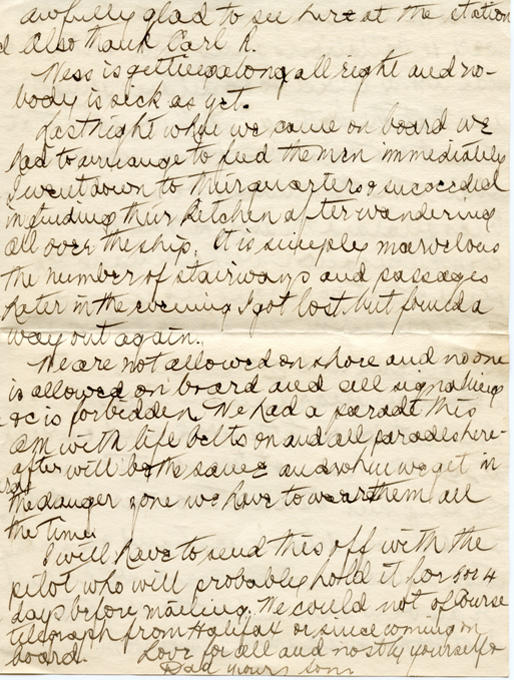 awfully glad to see her at the station
Also thank Carl R.
Mess is getting along all right and no-
body is sick as yet.
Last night when we came on board we
had to arrange to feed the men immediately
I went down to their quarters & succeeded
in finding their kitchen after wandering
all over the ship. It is simply marvelous
the number of stairways and passages
Later in the evening I got lost but found a
way out again.
We are not allowed on shore and no one
is allowed on board and all signalling
&c is forbidden. We had a parade this
am with life belts on and all parades here-
after will be the same and when we get in
the danger zone we have to wear them all
the time.
I will have to send this off with the
pilot who will probably hold it for 3 or 4
days before mailing. We could not of course
telegraph from Halifax or since coming on
board. Love for all and mostly yourself &
Dad your son